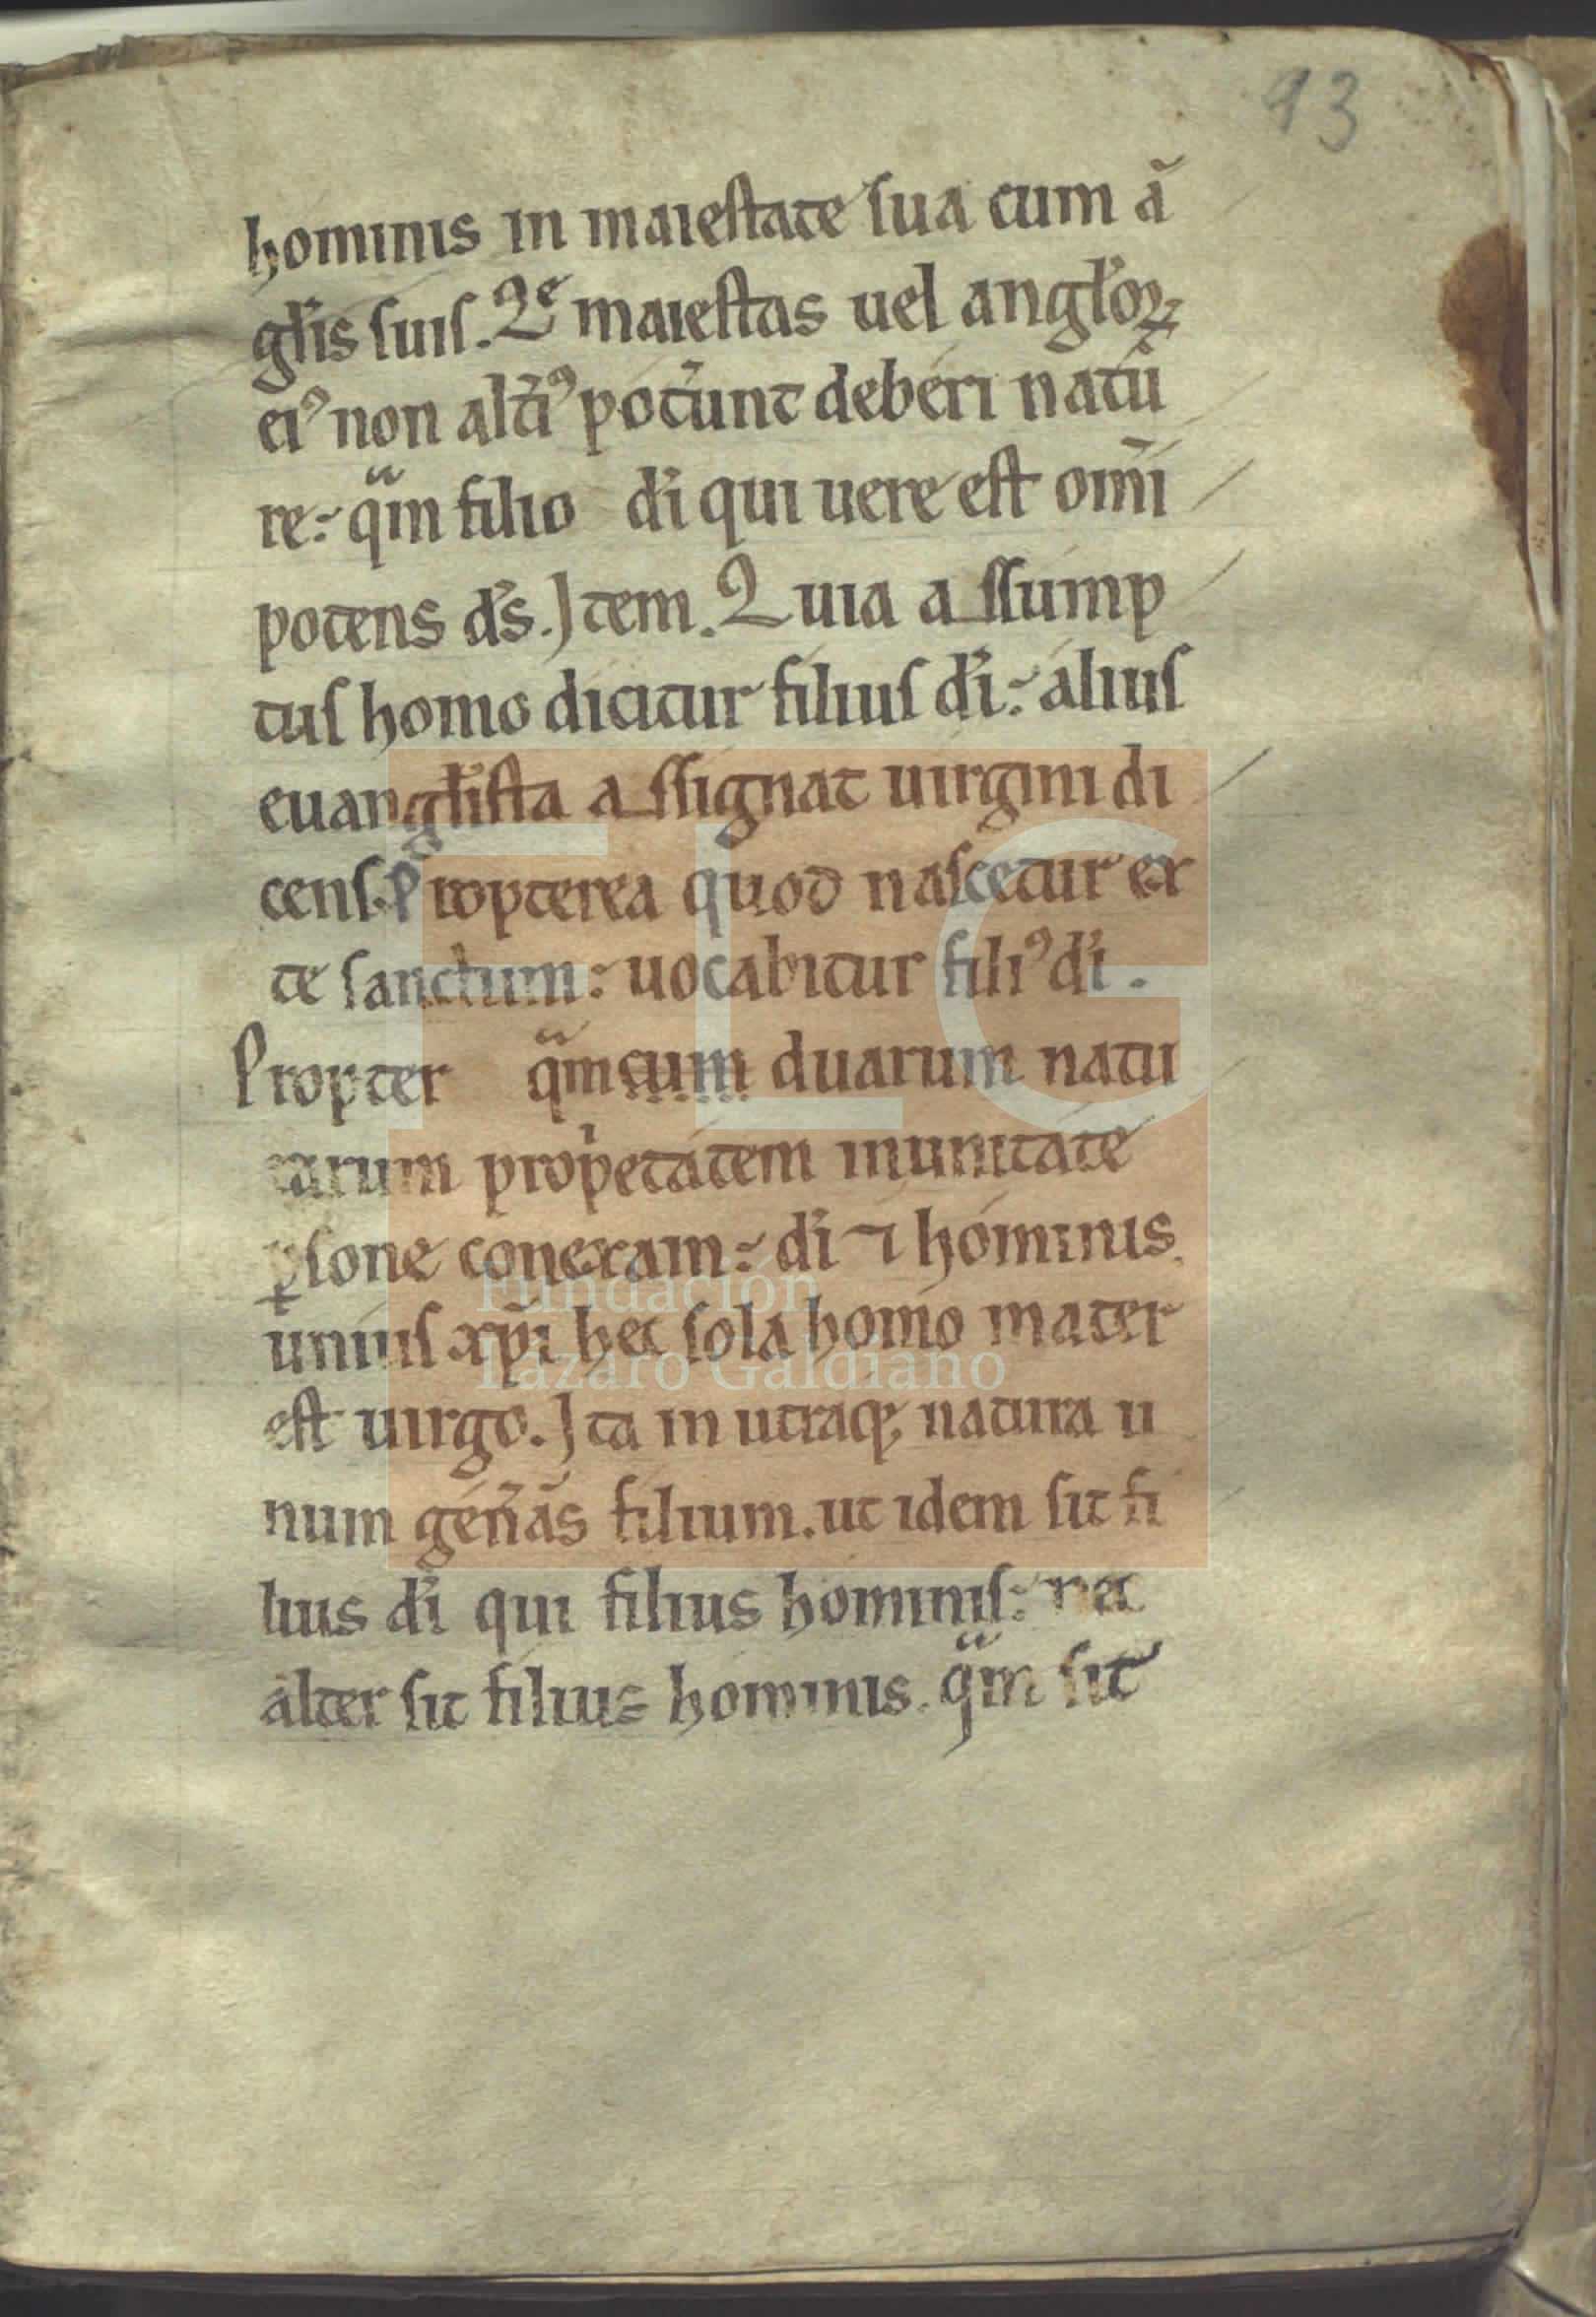 93
hominis in maiestate sua cum ā
gl̓is suis. Qͤ maiestas uel angl̓oꝝ
eiꝰ non alt̓iꝰ pot̓unt deberi natu
re: qͫm filio dī qui uere est om̄i
potens d̓s. Item. Quia assump
tus homo dicitur filius dī: alius
euangl̓ista assignat uirgini di
cens. Propterea quod nascetur ex
te sanctum: uocabitur filiꝰ dī.
Propter qͫm cum duarum natu
rarum prop̓etatem inunitate
ꝑsone conexam: dī ⁊ hominis
unius xp̄i hec sola homo mater
est uirgo. Ita in utraqꝫ natura u
num gen̓ās filium. ut idem sit fi
lius dī qui filius hominis: nec
alter sit filius hominis. qͫm sit
FLG
Fundación
Lázaro Galdiano